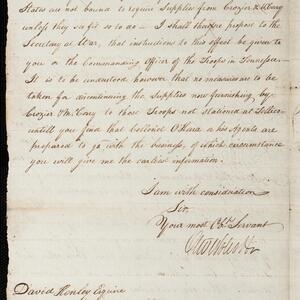 States are not bound to require Supplies from Crozier & McCarry
unless they see fit so to do — I shall therefore propose to the
Secretary at War, that instructions to this effect be given to
you or the Commanding Officer of the Troops in Tennessee.
It is to be understood however that no measures are to be
taken for discontinuing the Supplies now furnishing, by
Crozier & McCarry to those Troops not stationed at Tellico
untill you find that Collonel O'Hara or his Agents are
prepared to go with the business, of which circumstance
you will give me the earliest information.
I am with consideration
Sir,
Your most Obt. Servant
David Henley Esquire